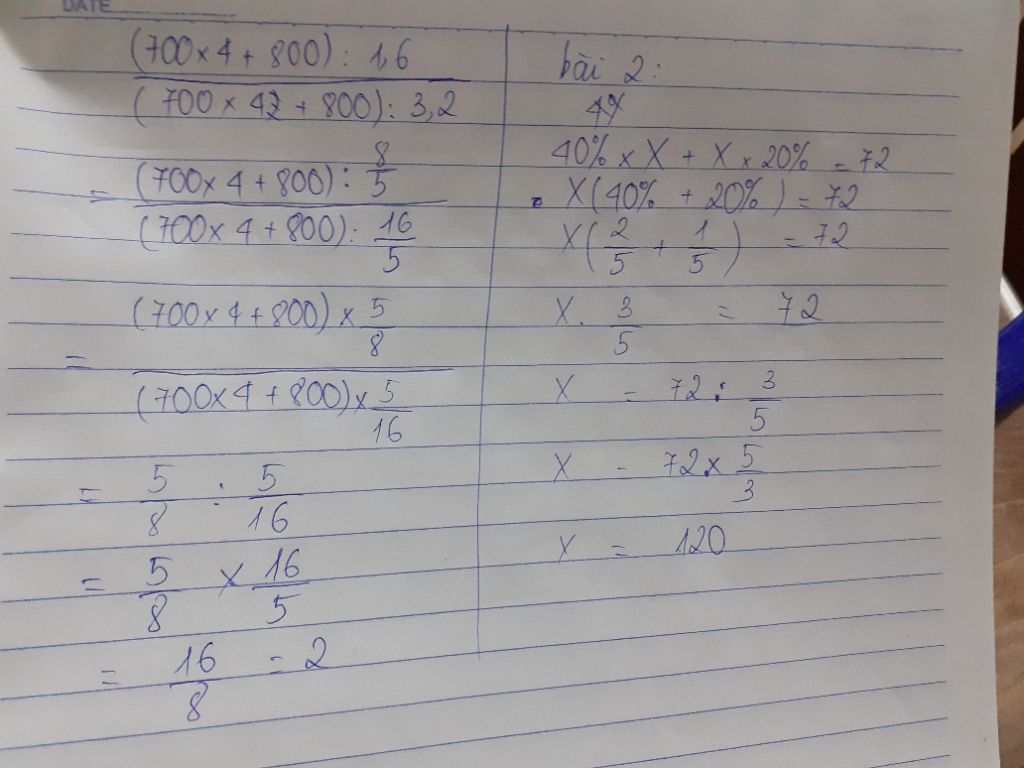 DATE
(700 × 4 + 800) : 1,6
(700 × 4 + 800) : 3,2
= (700 × 4 + 800) : 8/5
(700 × 4 + 800) : 16/5
= (700 × 4 + 800) × 5/8
(700 × 4 + 800) × 5/16
= 5/8 : 5/16
= 5/8 × 16/5
= 16/8 = 2
bài 2:
40% × X + X × 20% = 72
X(40% + 20%) = 72
X(2/5 + 1/5) = 72
X . 3/5 = 72
X = 72 : 3/5
X = 72 × 5/3
X = 120